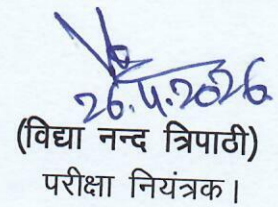 26.4.2026
(विद्या नन्द त्रिपाठी)
परीक्षा नियंत्रक।